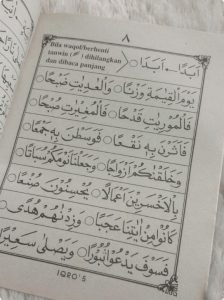 ٨
Bila waqof/berhenti
tanwin ( ــً ) dihilangkan
dan dibaca panjang
اَبَدًا ۔ اَبَدَا
يَوْمَ الْقِيٰمَةِ وَزْنًا ۔ وَالْعٰدِيٰتِ ضَبْحًا
فَالْمُوْرِيٰتِ قَدْحًا ۔ فَالْمُغِيْرٰتِ صُبْحًا
فَاَثَرْنَ بِهٖ نَقْعًا ۔ فَوَسَطْنَ بِهٖ جَمْعًا
وَخَلَقْنٰكُمْ اَزْوَاجًا ۔ وَجَعَلْنَا نَوْمَكُمْ سُبَاتًا
بِالْاَخْسَرِيْنَ اَعْمَالًا ۔ يُحْسِنُوْنَ صُنْعًا
كَانُوْا مِنْ اٰيٰتِنَا عَجَبًا ۔ وَزِدْنٰهُمْ هُدًى
فَسَوْفَ يَدْعُوْا ثُبُوْرًا ۔ وَيَصْلٰى سَعِيْرًا
IQRO'5